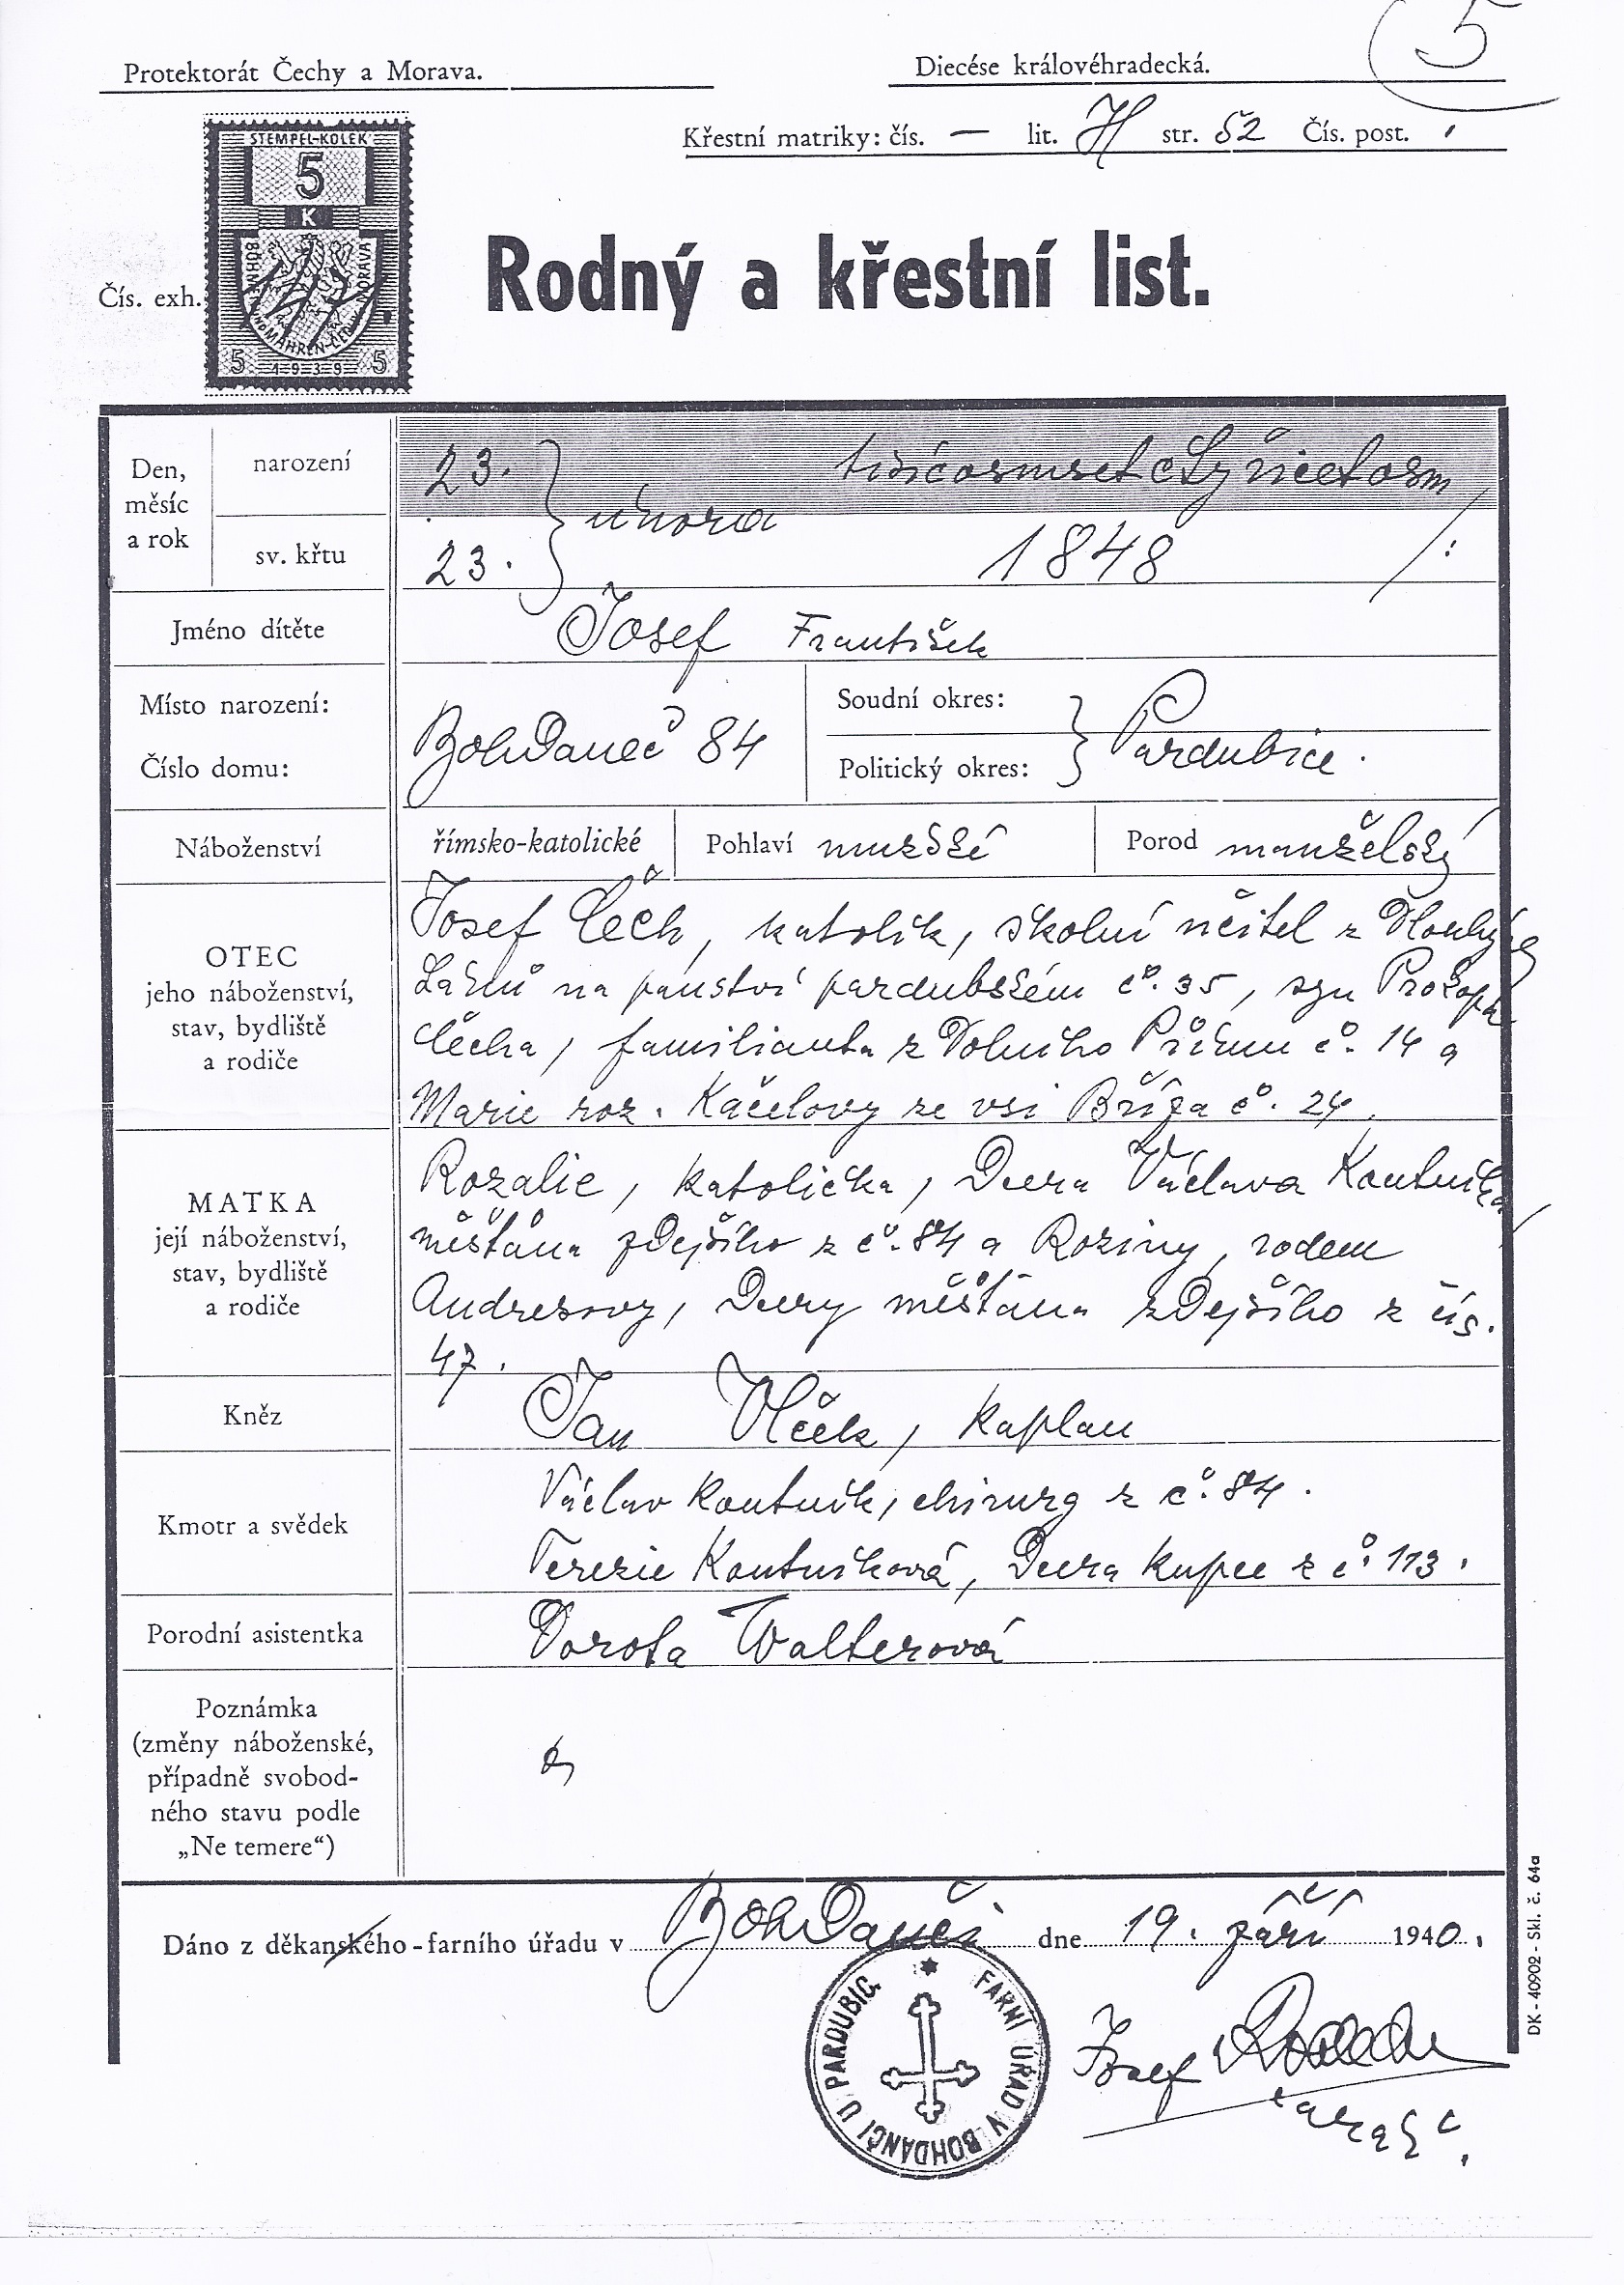 5
Protektorát Čechy a Morava.
Diecése královéhradecká.
Křestní matriky: čís. — lit. H str. 52 Čís. post.
STEMPEL-KOLEK
5
K
BÖHMEN U. MÄHREN-ČECHY MORAVA
5 1939 5
Čís. exh.
Rodný a křestní list.
Den, měsíc a rok
narození
23.
tisícosmsetčtyřicetosm
února
sv. křtu
23.
1848
Jméno dítěte
Josef František
Místo narození:
Číslo domu:
Bohdaneč 84
Soudní okres:
Politický okres:
Pardubice.
Náboženství
římsko-katolické
Pohlaví mužské
Porod manželský
OTEC
jeho náboženství,
stav, bydliště
a rodiče
Josef Čech, katolík, školní učitel z Dlouhých
Lánů na panství pardubském č. 35, syn Prokopa
Čecha, familianta z Dolního Přímu č. 14 a
Marie roz. Kačelovy ze vsi Bříza č. 24.
MATKA
její náboženství,
stav, bydliště
a rodiče
Rozalie, katolička, dcera Václava Koutníka
měšťana zdejšího z č. 84 a Roziny, rodem
Andresovy, dcery měšťana zdejšího z čís.
47.
Kněz
Jan Vlček, kaplan
Kmotr a svědek
Václav Koutník, chirurg z č. 84.
Terezie Koutníková, dcera kupce z č. 113.
Porodní asistentka
Dorota Walterová
Poznámka
(změny náboženské,
případně svobod-
ného stavu podle
„Ne temere“)
Dáno z děkanského - farního úřadu v Bohdanči dne 19. září 1940.
FARNÍ ÚŘAD V BOHDANČI U PARDUBIC.
Josef
farář
DK - 40902 - Skl. č. 64a